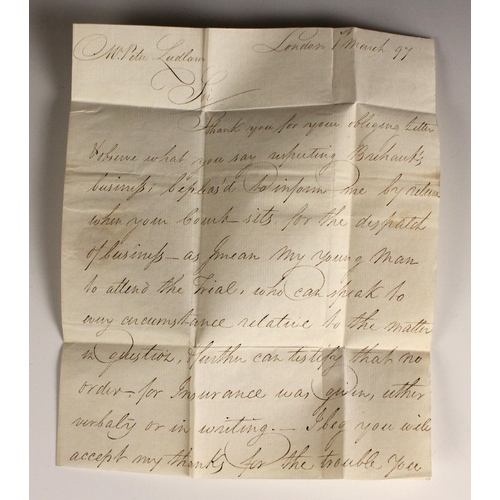 Mr Peter Ludlam London 1 March 97
Sir
Thank you for your obliging Letter
& observe what you say respecting Brehaut's
business, be pleas'd to inform me by return
when your Court sits for the despatch
of business — as I mean my young man
to attend the Trial, who can speak to
every circumstance relative to the matter
in question, & further can testify that no
order for Insurance was given, either
verbaly or in writing. — I beg you will
accept my thanks for the trouble you